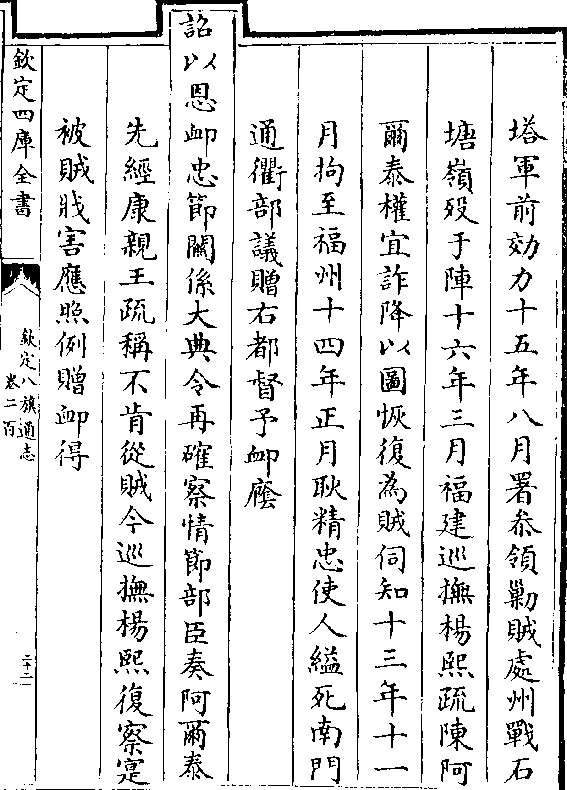 塔軍前効力十五年八月署叅領勦賊處州戰石
塘嶺殁于陣十六年三月福建巡撫楊熙疏陳阿
爾泰權宜詐降以圖恢復為賊伺知十三年十一
月拘至福州十四年正月耿精忠使人縊死南門
通衢部議贈右都督予䘏廕
詔以恩䘏忠節關係大典令再確察情節部臣奏阿爾泰
先經康親王疏稱不肯從賊今巡撫楊熙復察寔
被賊戕害應照例贈䘏得
欽定四庫全書
欽定八旗通志
卷二百
二十二